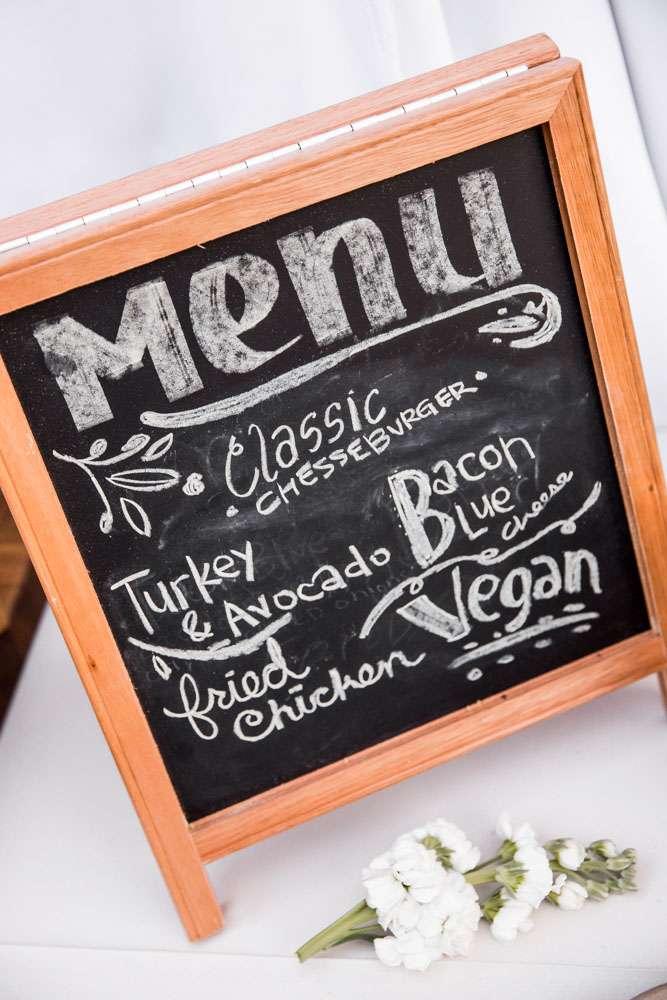 Menu
Classic
CHESSEBURGER
Bacon
Blue
cheese
Turkey
& Avocado
Vegan
fried
Chicken